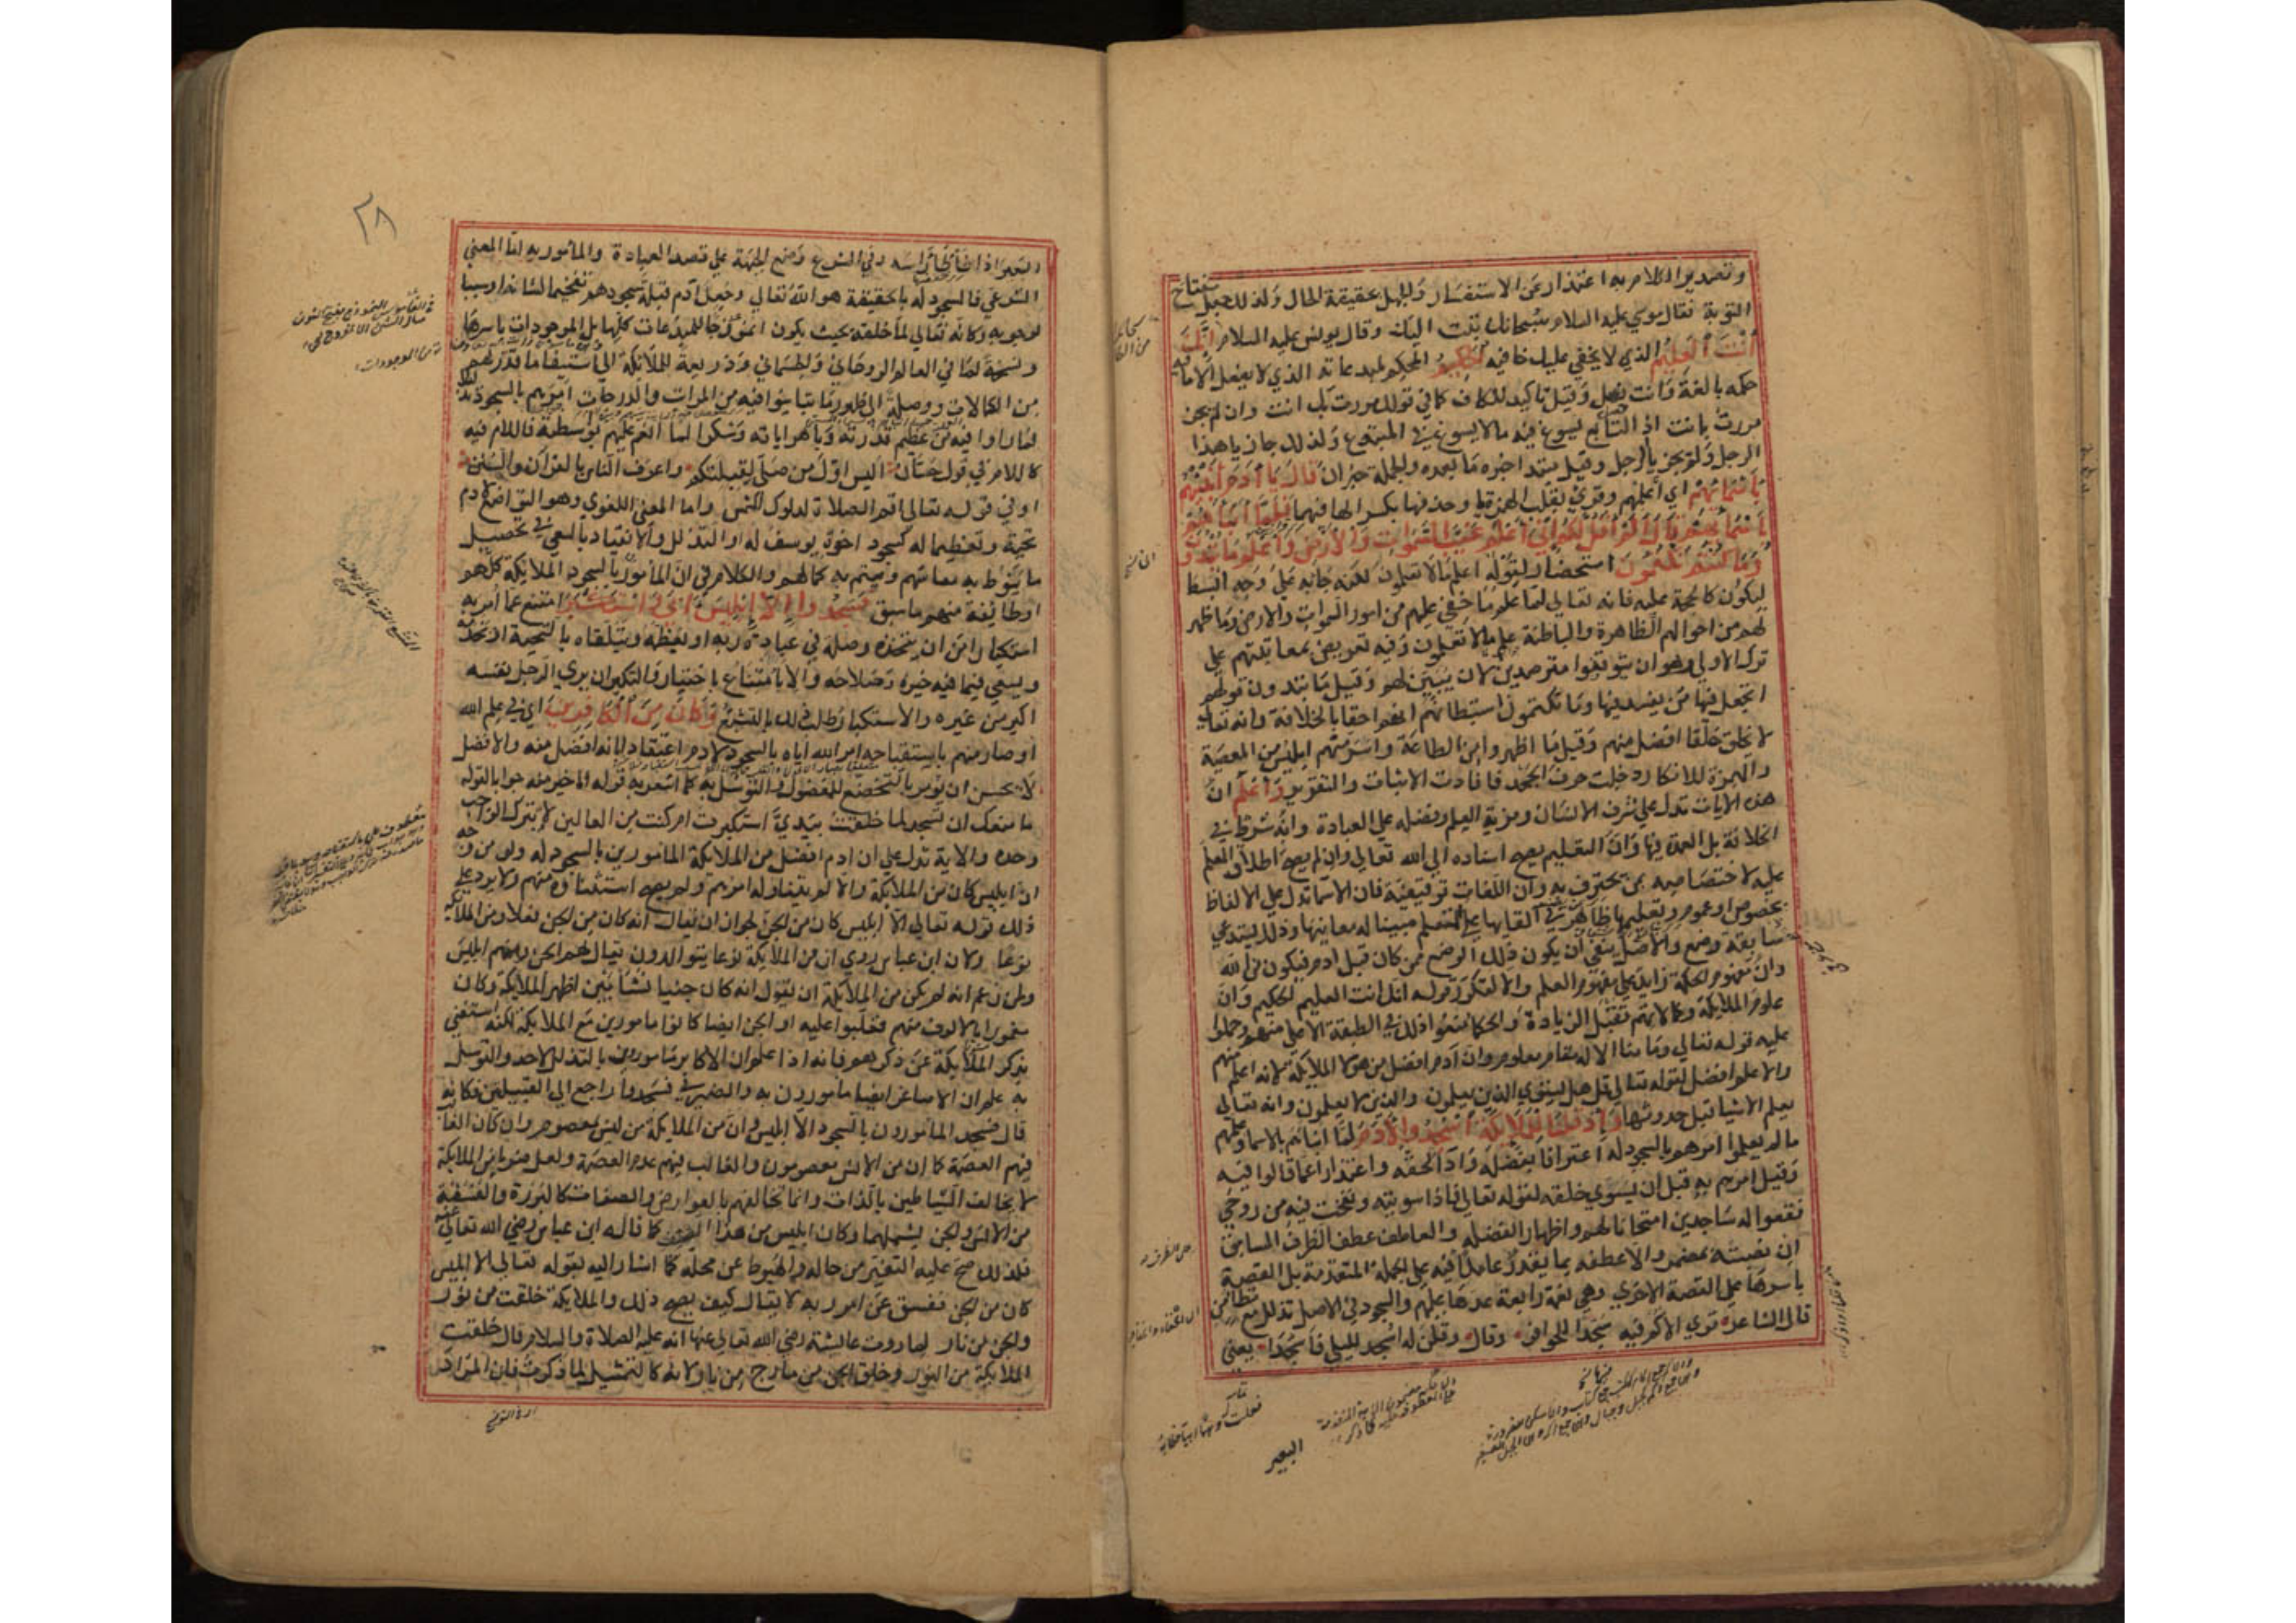 وتصدير الكلام به اعتذار عن الاستفسار والجهل بحقيقة الحال ولذلك جعل مفتاح
التوبة فقال موسي عليه السلام سبحانك تبت اليك وقال يونس عليه السلام انك
أنت العليم الذي لا يخفي عليك خافيه الحكيم المحكم لمبدعاته الذي لا يفعل الا ما فيه
حكمه بالغة وانت فصل وقيل تاكيد للكاف كما في قولك مررت بك انت وان لم يجز
مررت بانت اذ التابع يسوغ فيه ما لا يسوغ في المتبوع ولذلك جاز يا هذا
الرجل ولم يجز يا الرجل وقيل مبتدا خبره ما بعده والجملة خبر ان قال يا آدم أنبئهم
بأسمائهم اي أعلمهم وقري بقلب الهمزة يا وحذفها بكسر الها فيهما فلما أنبأهم
بأسمائهم قال ألم أقل لكم إني أعلم غيب السموات والأرض وأعلم ما تبدون
وما كنتم تكتمون استحضار لقوله اعلم ما لا تعلمون لكنه جا به علي وجه ابسط
ليكون كالحجة عليه فانه تعالي لما علم ما خفي عليهم من امور السموات والارض وما ظهر
لهم من احوالهم الظاهرة والباطنة علم ما لا تعلمون وفيه تعريض بمعاتبتهم علي
ترك الاولي وهو ان يتوقفوا مترصدين لان يبين لهم وقيل ما تبدون قولهم
اتجعل فيها من يفسد فيها وما تكتمون استبطانهم انهم احقا بالخلافة وانه تعالي
لا يخلق خلقا افضل منهم وقيل ما اظهروا من الطاعة واسر منهم ابليس من المعصية
والهمزة للانكار دخلت حرف الجحد فافادت الاثبات والتقرير واعلم ان
هذه الايات تدل علي شرف الانسان ومزية العلم وفضله علي العبادة وانه شرط في
الخلافة بل العمدة فيها وان التعليم يصح اسناده الي الله تعالي وان لم يصح اطلاق المعلم
عليه لاختصاصه بمن يحترف به وان اللغات توقيفية فان الاسما تدل علي الالفاظ
بخصوص او عموم وتعليمها ظاهر في القايها علي المتعلم مبينا له معانيها وذلك يستدعي
سابقة وضع والاصل ينفي ان يكون ذلك الوضع ممن كان قبل ادم فيكون من الله
وان مفهوم الحكمة زايد علي مفهوم العلم والا لتكرر قوله انك انت العليم الحكيم وان
علوم الملايكة وكمالاتهم تقبل الزيادة والحكما منعوا ذلك في الطبقة الاعلي منهم وحملوا
عليه قوله تعالي وما منا الا له مقام معلوم وان آدم افضل من هولا الملايكة لانه اعلم منهم
والاعلم افضل لقوله تعالي قل هل يستوي الذين يعلمون والذين لا يعلمون وانه تعالي
يعلم الاشيا قبل حدوثها وإذ قلنا للملائكة اسجدوا لآدم لما انباهم بالاسما وعلمهم
ما لم يعلموا امرهم بالسجود له اعترافا بفضله واداً لحقه واعتذارا عما قالوا فيه
وقيل امرهم به قبل ان يسوي خلقه لقوله تعالي فاذا سويته ونفخت فيه من روحي
فقعوا له ساجدين امتحانا لهم واظهارا لفضله والعاطف عطف الظرف السابق
ان نصبته بمضمر والا عطفه بما يقدر عاملا فيه علي الجملة المتقدمة بل القصة
باسرها علي القصة الاخري وهي نعمة رابعة عدها عليهم والسجود في الاصل تذلل مع تطامن
قال الشاعر تري الاكم فيه سجدا للحوافر وقال وقلن له اسجد لليلي فاسجدا يعني
البعير
٢٨
البعير اذا طأطأ راسه وفي الشرع وضع الجبهة علي قصد العبادة والمامور به اما المعني
الشرعي فالمسجود له بالحقيقة هو الله تعالي وجعل آدم قبلة سجودهم تفخيما لشانه او سببا
لوجوبه وكانه تعالي لما خلقه بحيث يكون انموذجا للمبدعات كلها بل الموجودات باسرها
ونسخة لما في العالم الروحاني والجسماني وذريعة للملائكة الي استيفا ما قدر لهم
من الكمالات ووصلة الي ظهور ما تباينوا فيه من المراتب والدرجات امرهم بالسجود تذللا
لما راوا فيه من عظيم قدرته وباهر اياته وشكرا لما انعم عليهم بواسطته فاللام فيه
كاللام في قول حسان اليس اول من صلي لقبلتكم واعرف الناس بالقران والسنن
او في قوله تعالي اقم الصلاة لدلوك الشمس واما المعني اللغوي وهو التواضع لادم
تحية وتعظيما له كسجود اخوة يوسف له او التذلل والانقياد بالسعي في تحصيل
ما ينوط به معاشهم ويتم به كمالهم والكلام في ان المامورين بالسجود الملايكة كلهم
او طائفة منهم ما سبق فسجدوا إلا إبليس أبى واستكبر امتنع عما امر به
استكبارا من ان يتخذه وصلة في عبادة ربه او يعظمه ويتلقاه بالتحية او يخدمه
ويسعي فيما فيه خيره وصلاحه والابا امتناع باختيار والتكبر ان يري الرجل نفسه
اكبر من غيره والاستكبار طلب ذلك بالتشبع وكان من الكافرين اي في علم الله
او صار منهم باستقباحه امر الله اياه بالسجود لادم اعتقادا بانه افضل منه والافضل
لا يحسن ان يومر بالتخضع للمفضول والتوسل به كما اشعر به قوله انا خير منه جوابا لقوله
ما منعك ان تسجد لما خلقت بيدي استكبرت ام كنت من العالين لا بترك الواجب
وحده والاية تدل علي ان ادم افضل من الملايكة المامورين بالسجود له ولو من وجه
ان ابليس كان من الملايكة والا لم يتناوله امرهم ولم يصح استثناوه منهم ولا يرد علي
ذلك قوله تعالي الا ابليس كان من الجن لجواز ان يقال انه كان من الجن فعلا ومن الملايكة
نوعا ولان ابن عباس روي ان من الملايكة نوعا يتوالدون يقال لهم الجن ومنهم ابليس
ولمن زعم انه لم يكن من الملايكة ان يقول انه كان جنيا نشا بين اظهر الملايكة وكان
مغمورا بالالوف منهم فغلبوا عليه او الجن ايضا كانوا مامورين مع الملايكة لكنه استغني
بذكر الملايكة عن ذكرهم فانه اذا علم ان الاكابر مامورون بالتذلل لاحد والتوسل
به علم ان الاصاغر ايضا مامورون به والضمير في فسجدوا راجع الي القبيلتين فكانه
قال فسجد المامورون بالسجود الا ابليس وان من الملايكة من ليس بمعصوم وان كان الغالب
فيهم العصمة كما ان من الانس معصومون والغالب فيهم عدم العصمة ولعل ضربا من الملايكة
لا يخالف الشياطين بالذات وانما تخالفهم بالعوارض والصفات كالبررة والفسقة
من الانس والجن يشملهما وكان ابليس من هذا الصنف كما قاله ابن عباس رضي الله تعالي عنه
فلذلك صح عليه التغير من حاله والهبوط عن محله كما اشار اليه بقوله تعالي الا ابليس
كان من الجن ففسق عن امر ربه لا يقال كيف يصح ذلك والملايكة خلقت من نور
والجن من نار لما روت عايشة رضي الله تعالي عنها انه عليه الصلاة والسلام قال خلقت
الملايكة من النور وخلق الجن من مارج من نار لانه كالتمثيل لما ذكرت فان المراد